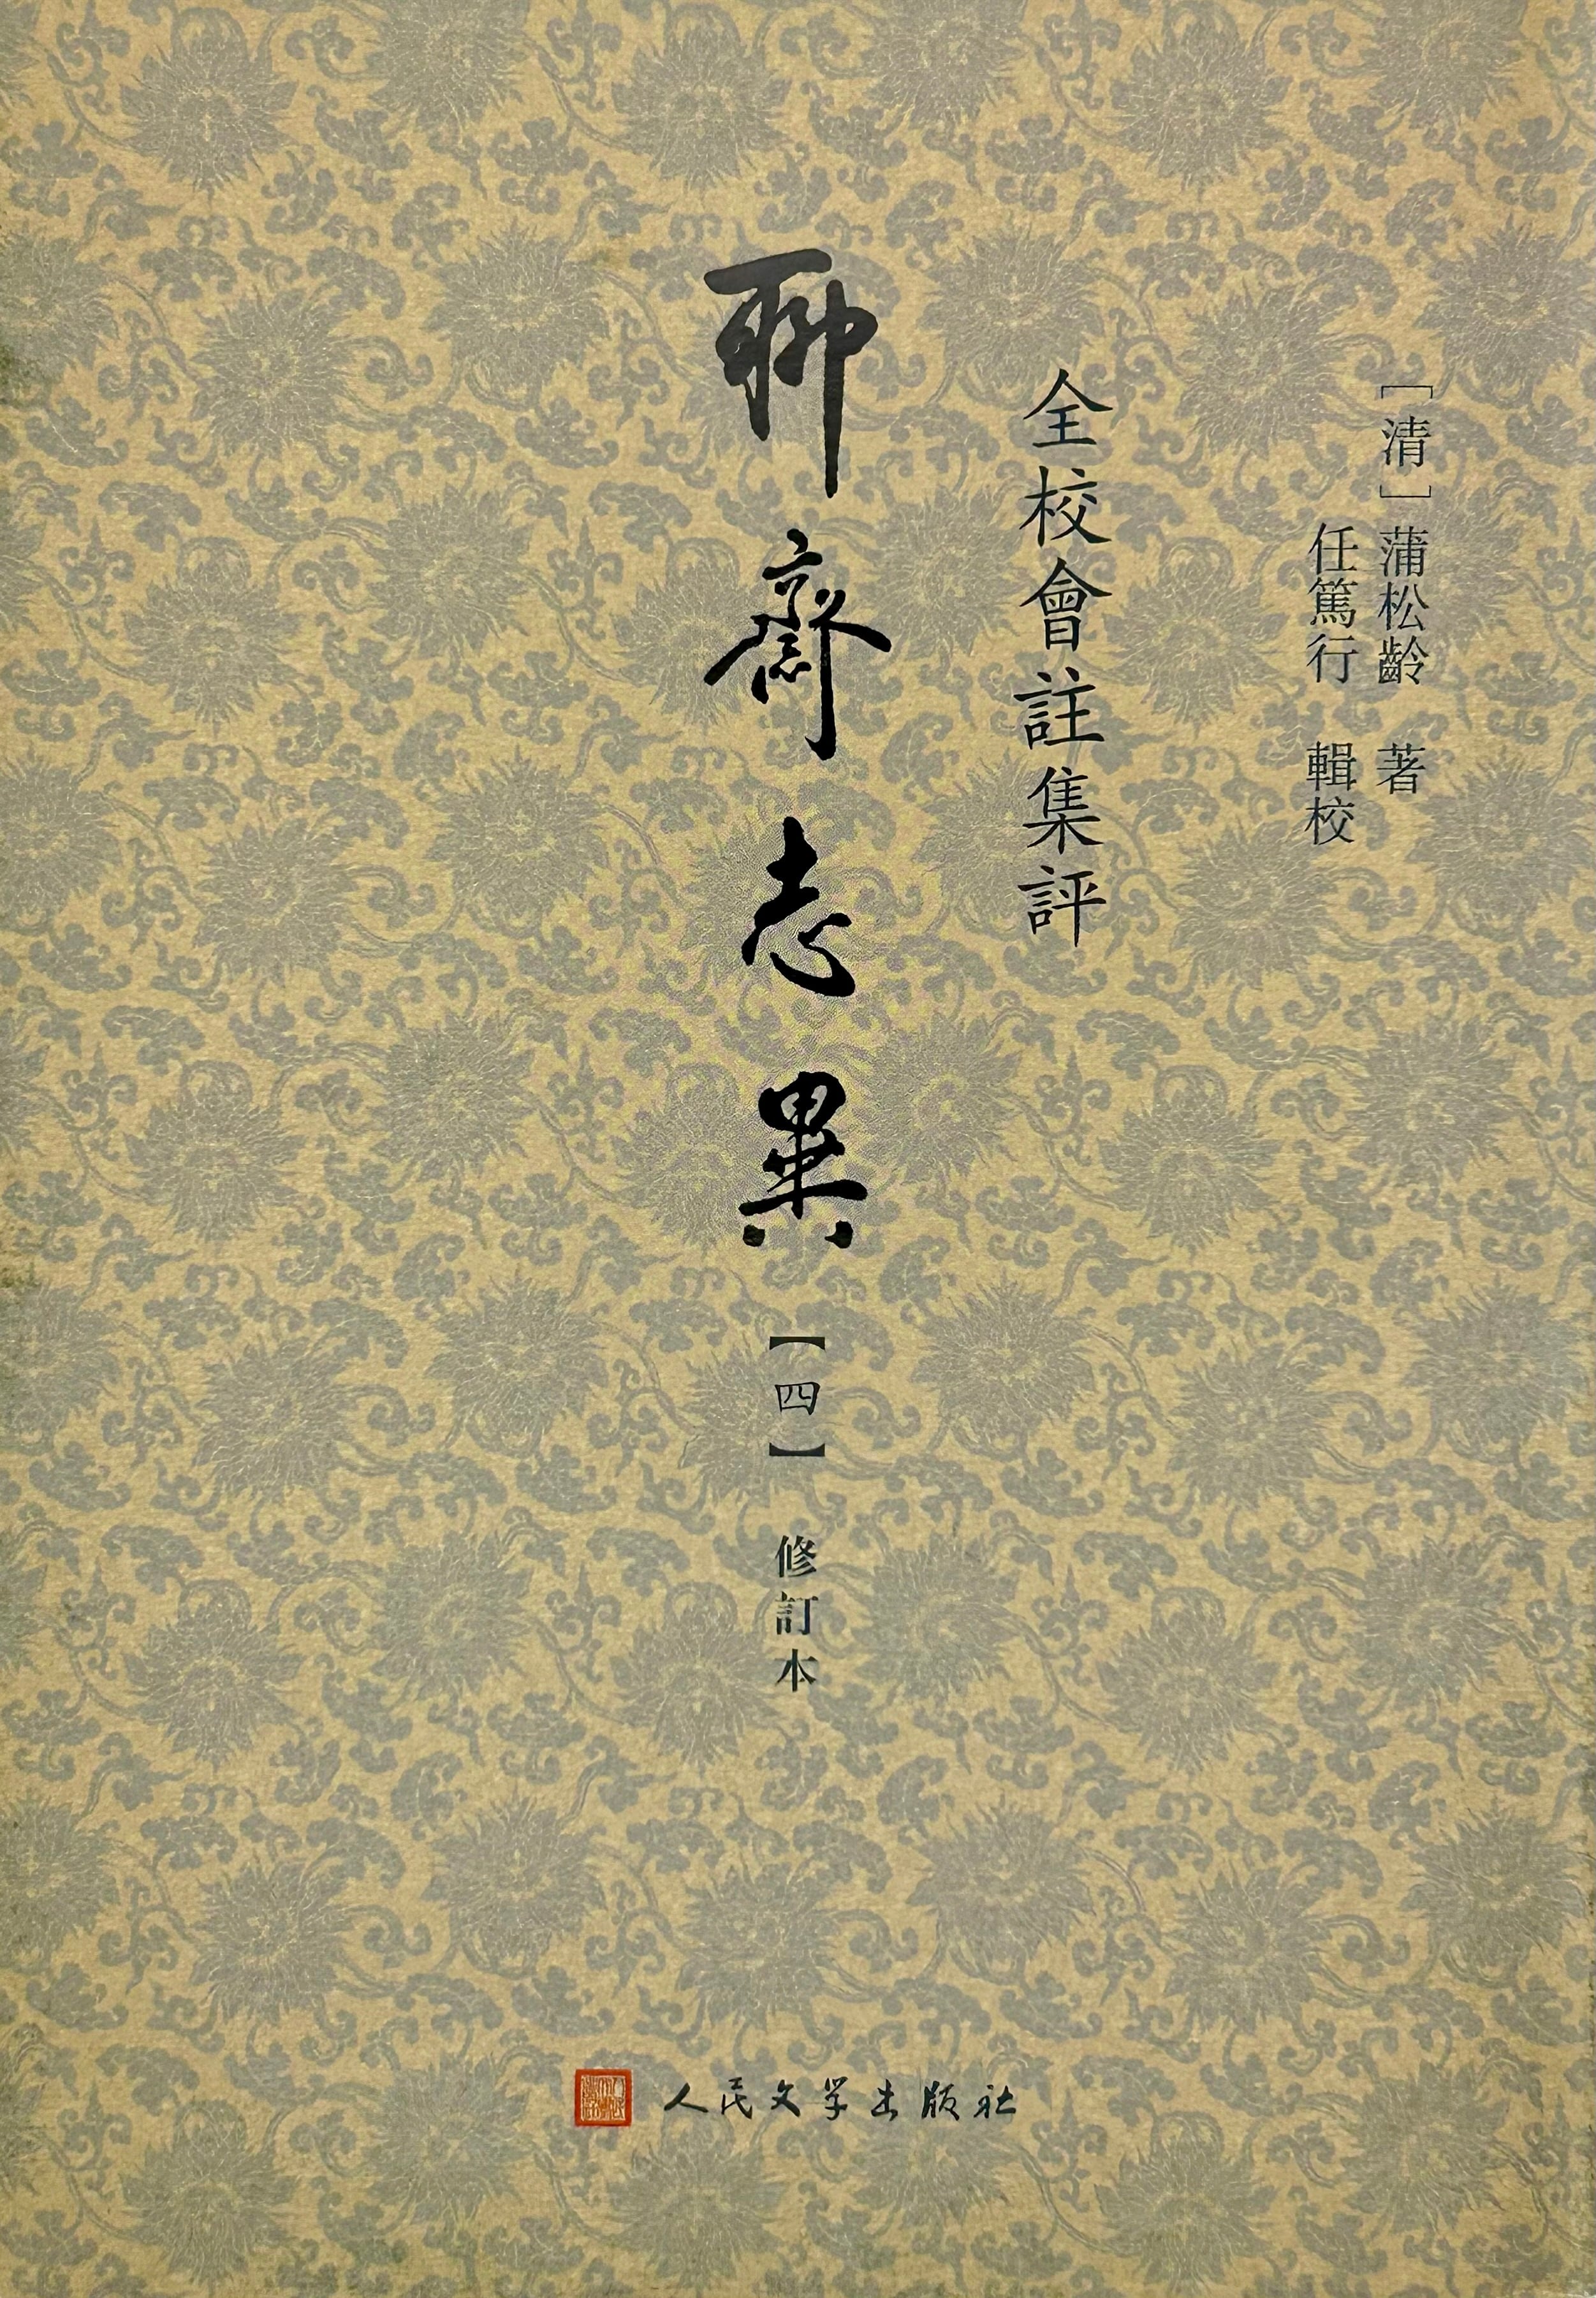 [清]蒲松齡 著
任篤行 輯校
全校會註集評
聊齋志異
【四】
修訂本
人民文学出版社